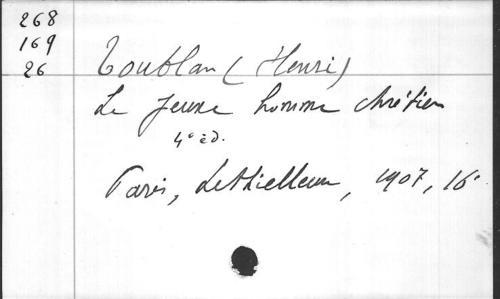 268
169
26
Toublan (Henri)
Le Jeune homme chrétien
4e éd.
Paris, Lethielleux, 1907, 16°